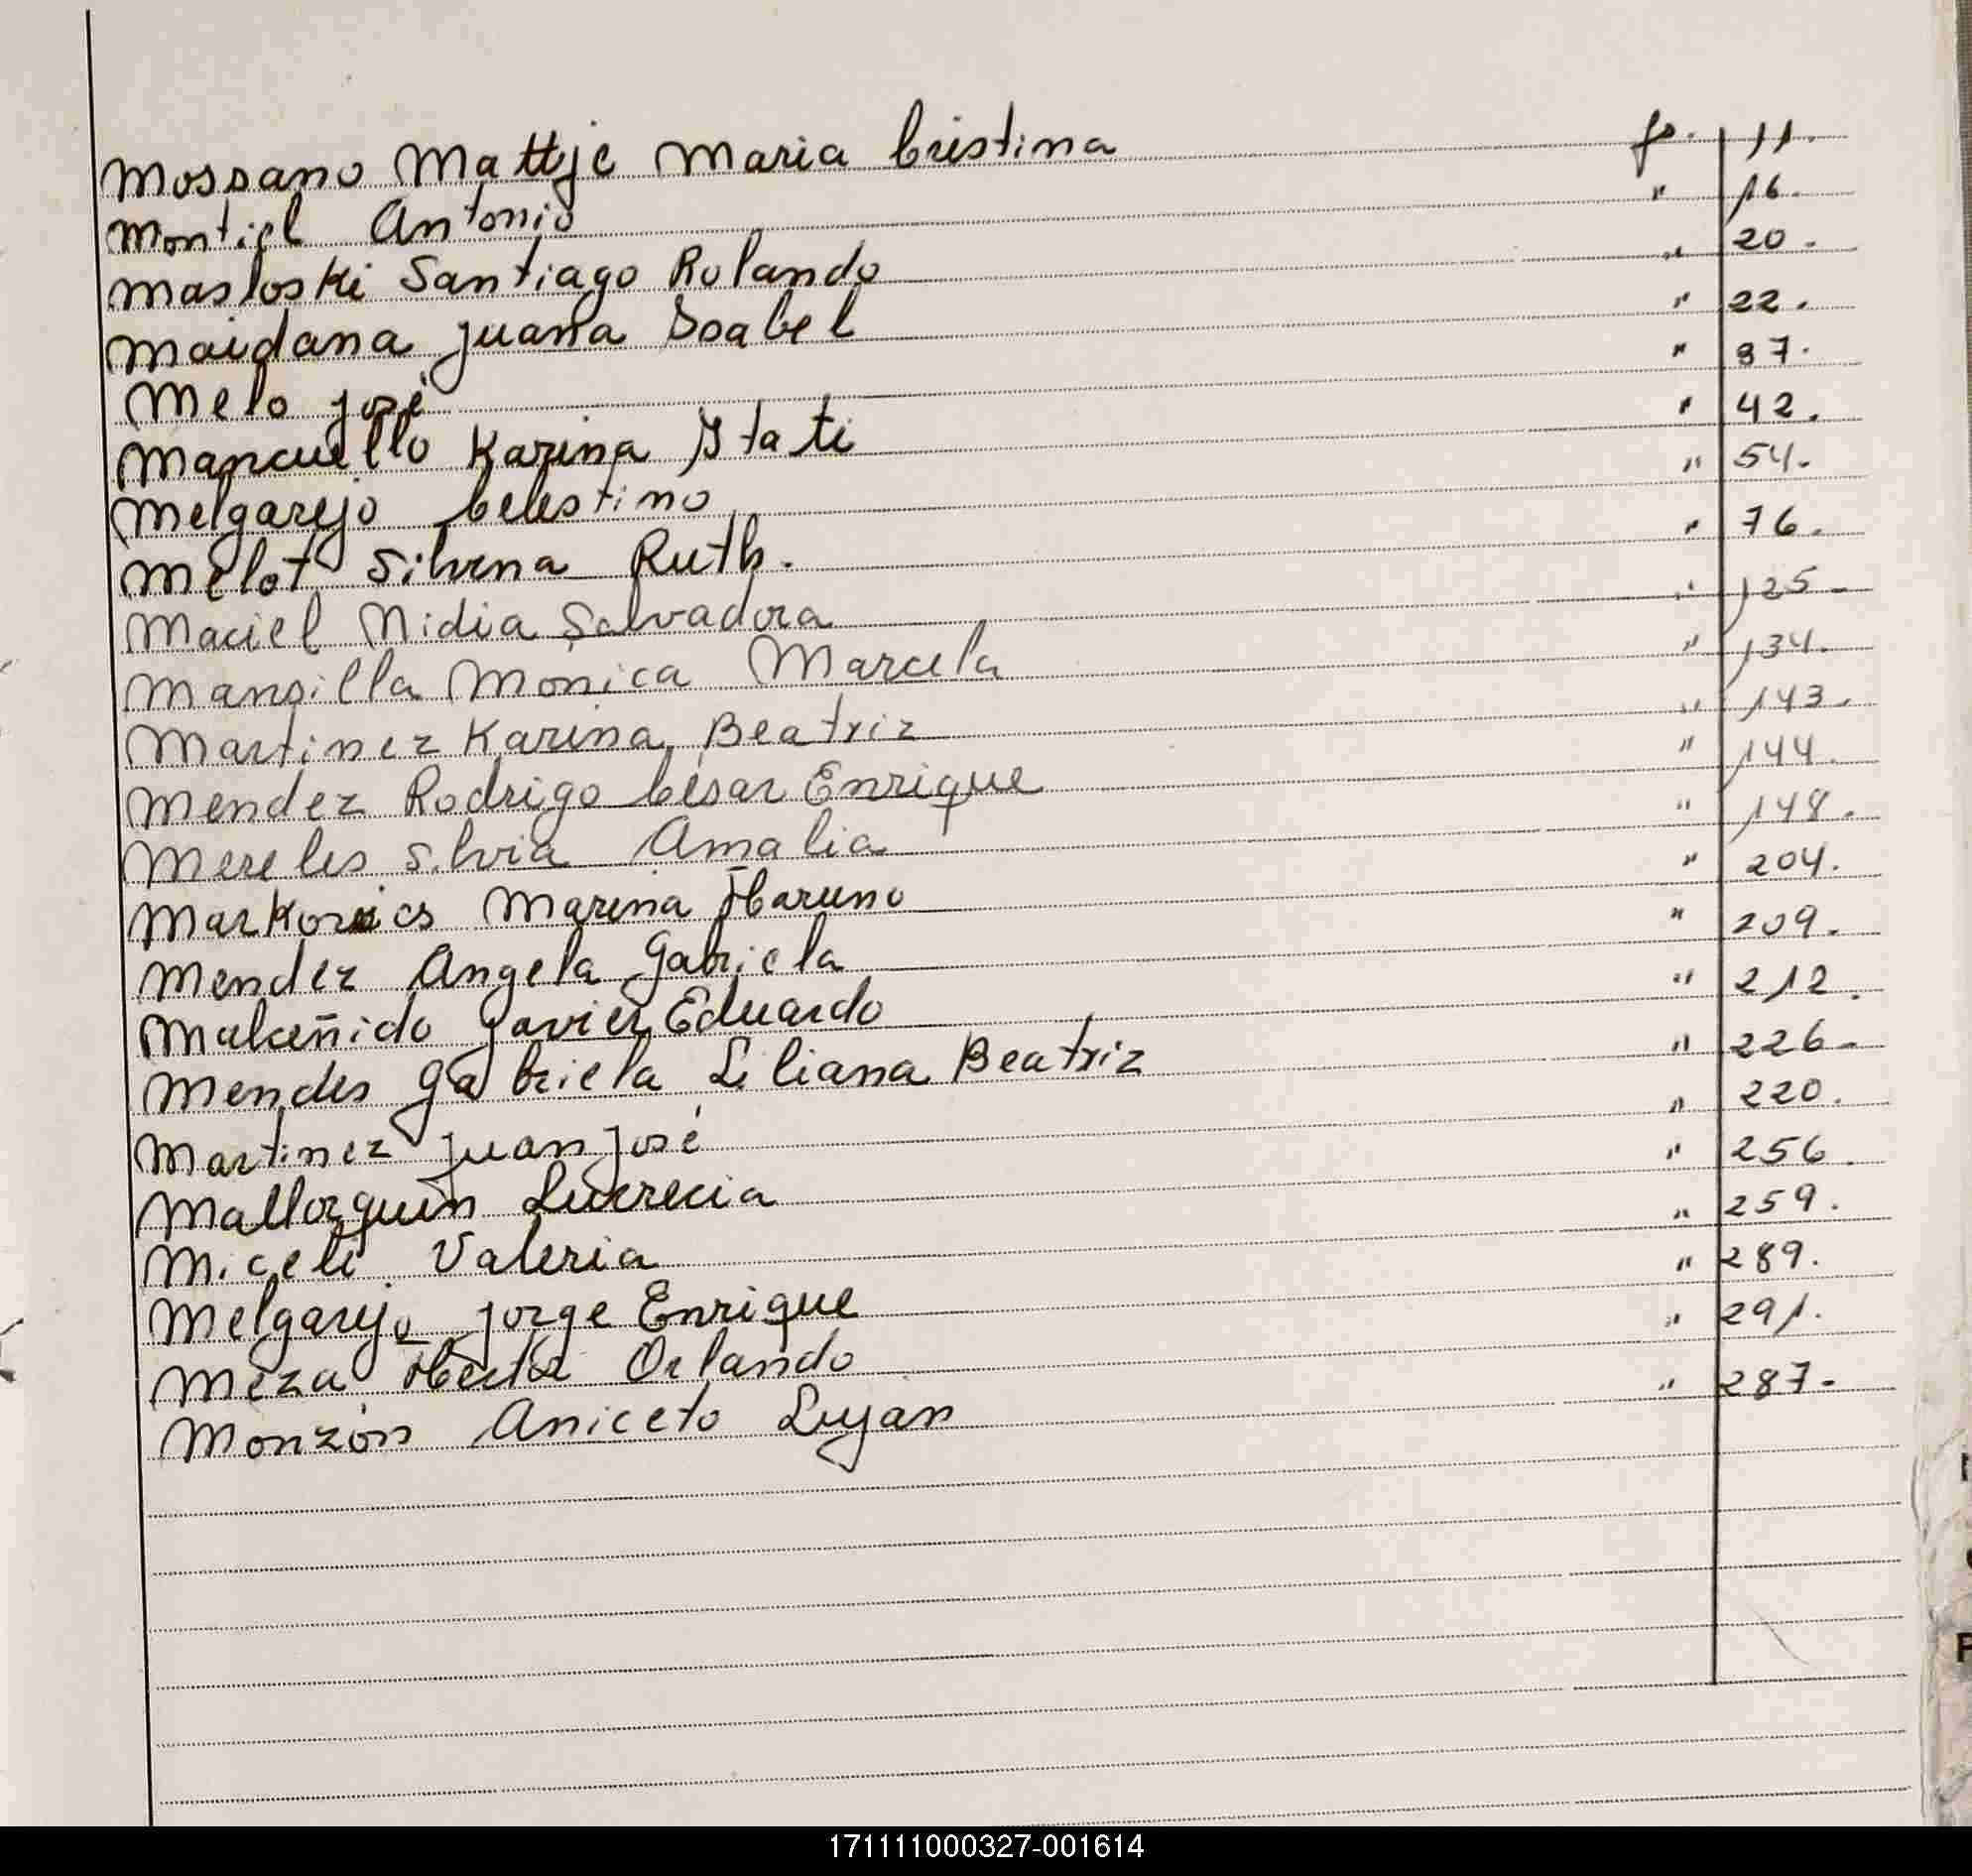 Mossano Mattje Maria Cristina fº. 11.
Montiel Antonio " 16.
Masloski Santiago Rolando " 20.
Maidana Juana Isabel " 22.
Melo José " 37.
Mancuello Karina Itati " 42.
Melgarejo Celestino " 54.
Melot Silvina Ruth. " 76.
Maciel Nidia Salvadora " 125-
Mansilla Monica Marcela " 134.
Martinez Karina Beatriz " 143.
Mendez Rodrigo César Enrique " 144.
Mereles Silvia Amalia " 148.
Markovics Marina Haruno " 204.
Mendez Angela Gabriela " 209.
Malceñido Javier Eduardo " 212.
Mendes Gabriela Liliana Beatriz " 226-
Martinez Juan José " 220.
Mallorquin Lucrecia " 256.
Miceli Valeria " 259.
Melgarejo Jorge Enrique " 289.
Meza Hector Orlando " 291.
Monzón Aniceto Lujan " 287-
171111000327-001614